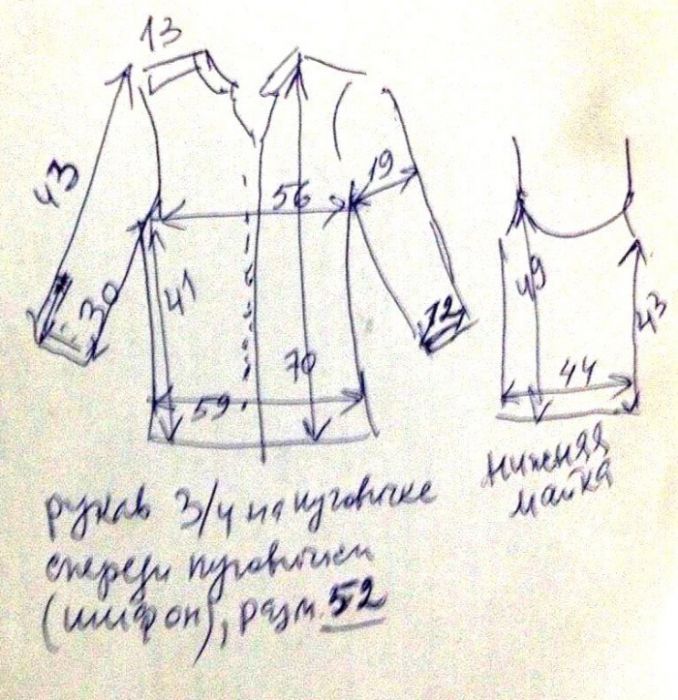 13
43
56
19
30
41
12
70
59
49
43
44
нижняя
майка
рукав 3/4 на пуговичке
спереди пуговички
(шифон), разм. 52